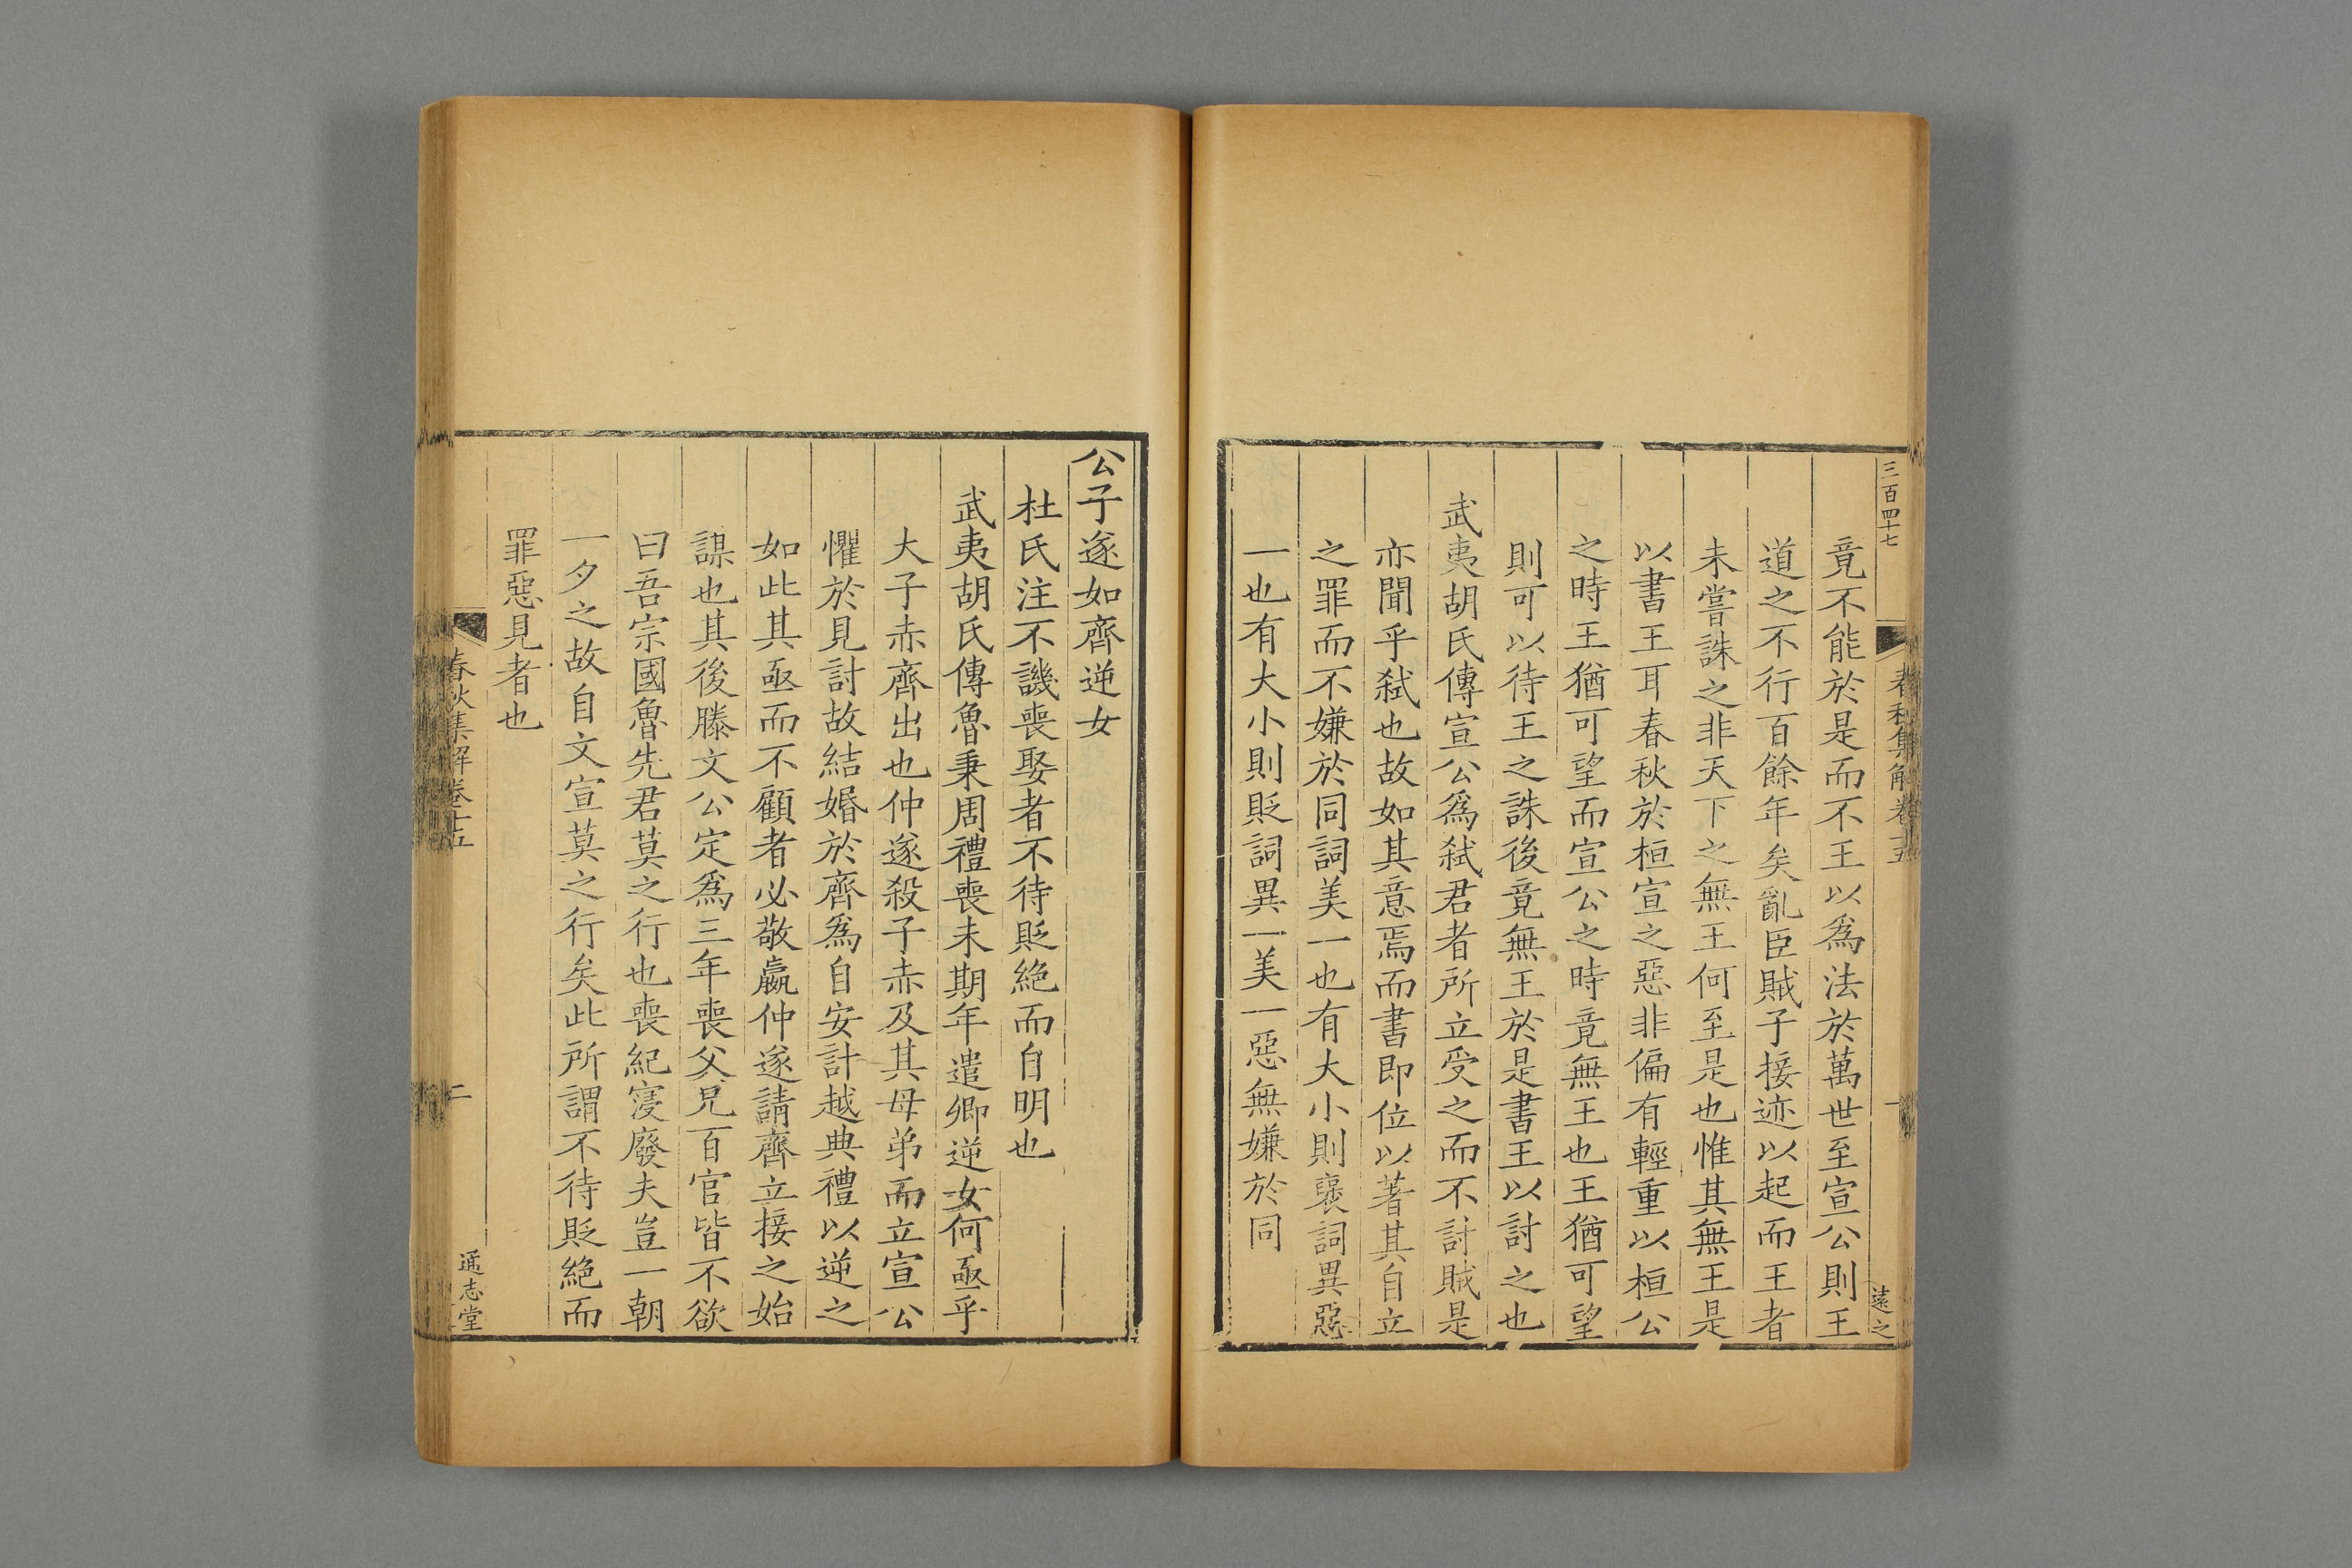 三百四十七
春秋集解卷十五
一
遠之
竟不能於是而不王以爲法於萬世至宣公則王
道之不行百餘年矣亂臣賊子接迹以起而王者
未嘗誅之非天下之無王何至是也惟其無王是
以書王耳春秋於桓宣之惡非偏有輕重以桓公
之時王猶可望而宣公之時竟無王也王猶可望
則可以待王之誅後竟無王於是書王以討之也
武夷胡氏傳宣公爲弑君者所立受之而不討賊是
亦聞乎弑也故如其意焉而書即位以著其自立
之罪而不嫌於同詞美一也有大小則襃詞異惡
一也有大小則貶詞異一美一惡無嫌於同
公子遂如齊逆女
杜氏注不譏喪娶者不待貶絶而自明也
武夷胡氏傳魯秉周禮喪未期年遣卿逆女何亟乎
大子赤齊出也仲遂殺子赤及其母弟而立宣公
懼於見討故結婚於齊爲自安計越典禮以逆之
如此其亟而不顧者必敬嬴仲遂請齊立接之始
謀也其後滕文公定爲三年喪父兄百官皆不欲
曰吾宗國魯先君莫之行也喪紀寖廢夫豈一朝
一夕之故自文宣莫之行矣此所謂不待貶絶而
罪惡見者也
春秋集解卷十五
二
通志堂